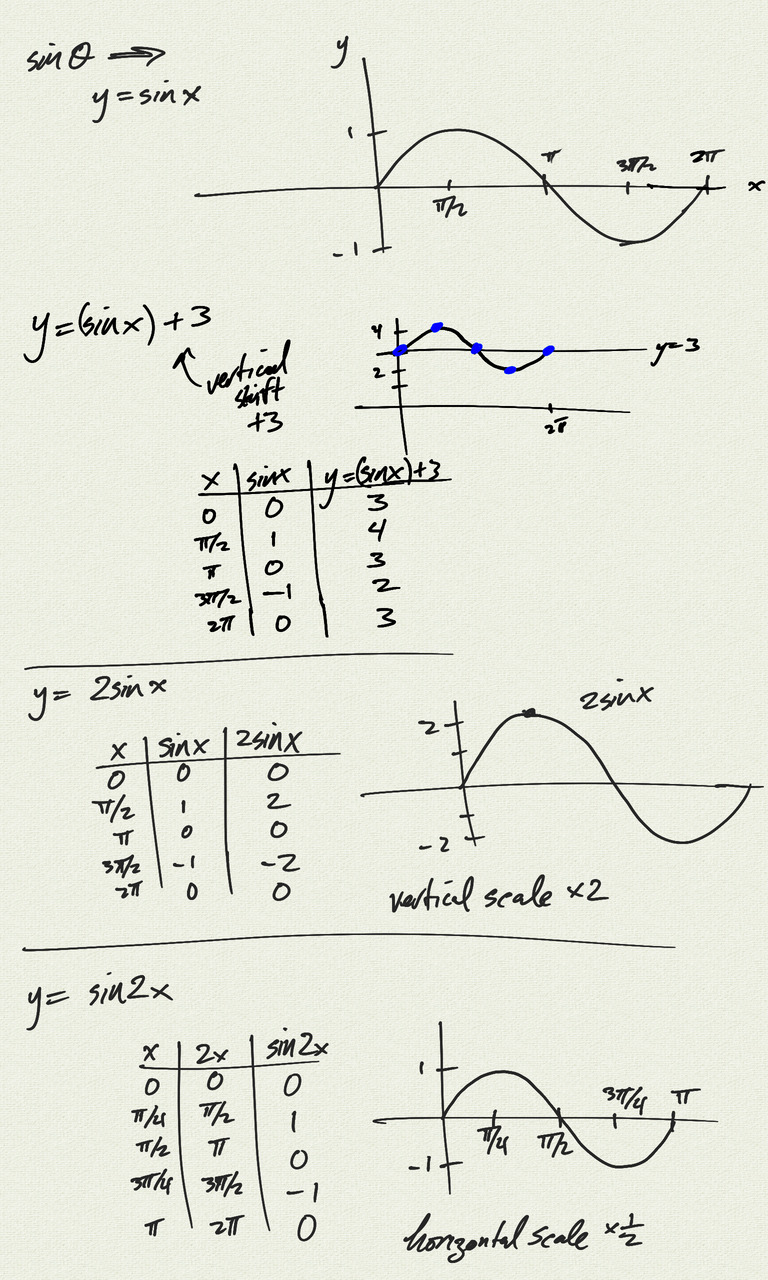 sin θ ⟹
y = sin x
y
1
-1
π/2
π
3π/2
2π
x
y = (sin x) + 3
vertical
shift
+3
4
2
y = 3
2π
x | sin x | y = (sin x) + 3
0 | 0 | 3
π/2 | 1 | 4
π | 0 | 3
3π/2 | -1 | 2
2π | 0 | 3
y = 2 sin x
x | sin x | 2 sin x
0 | 0 | 0
π/2 | 1 | 2
π | 0 | 0
3π/2 | -1 | -2
2π | 0 | 0
2 sin x
2
-2
vertical scale ×2
y = sin 2x
x | 2x | sin 2x
0 | 0 | 0
π/4 | π/2 | 1
π/2 | π | 0
3π/4 | 3π/2 | -1
π | 2π | 0
1
-1
π/4
π/2
3π/4
π
horizontal scale × 1/2